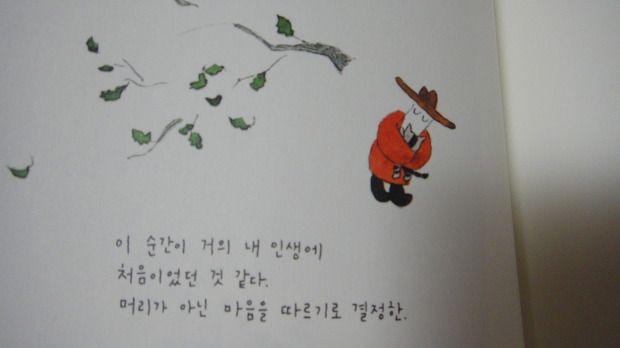 이 순간이 거의 내 인생에
처음이었던 것 같다.
머리가 아닌 마음을 따르기로 결정한.